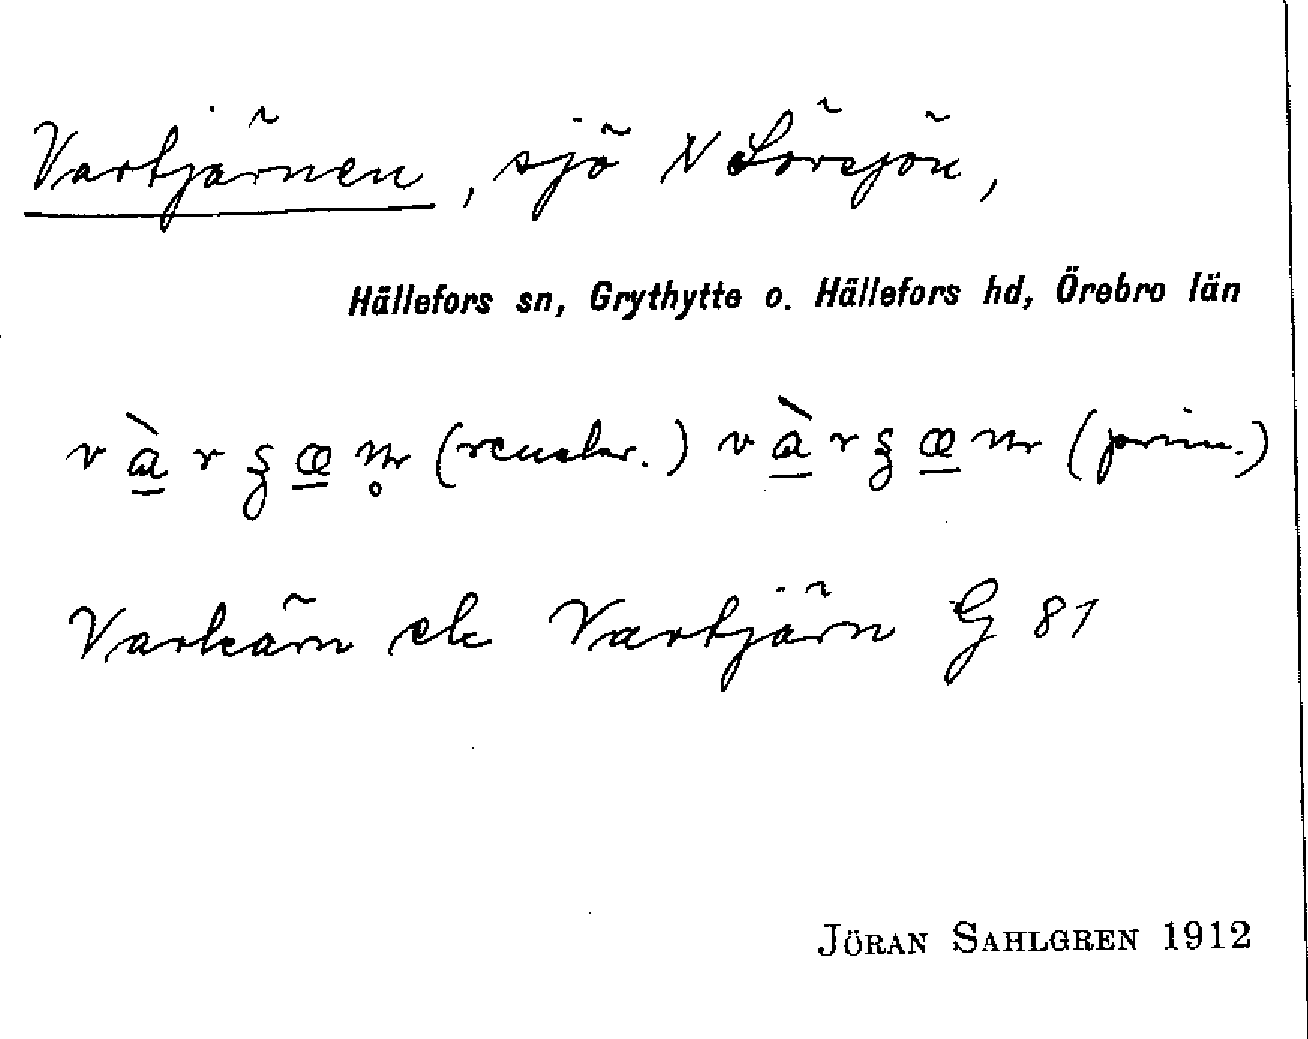 Vartjärnen, sjö N Lörsjön,
Hällefors sn, Grythytte o. Hällefors hd, Örebro län
(renskr.) (prim.)
Varkärn el. Vartjärn G 81
JÖRAN SAHLGREN 1912